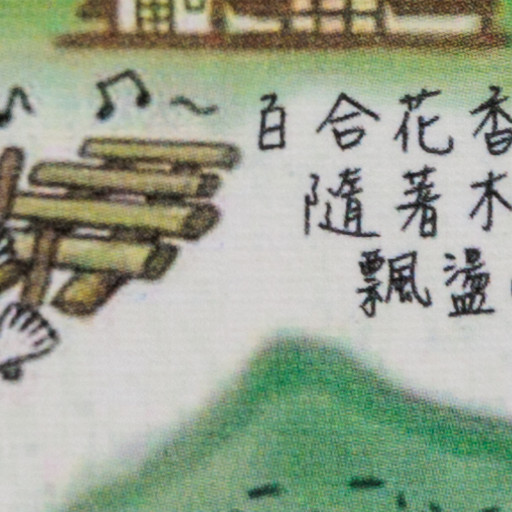 百合花香
隨著木
飄盪